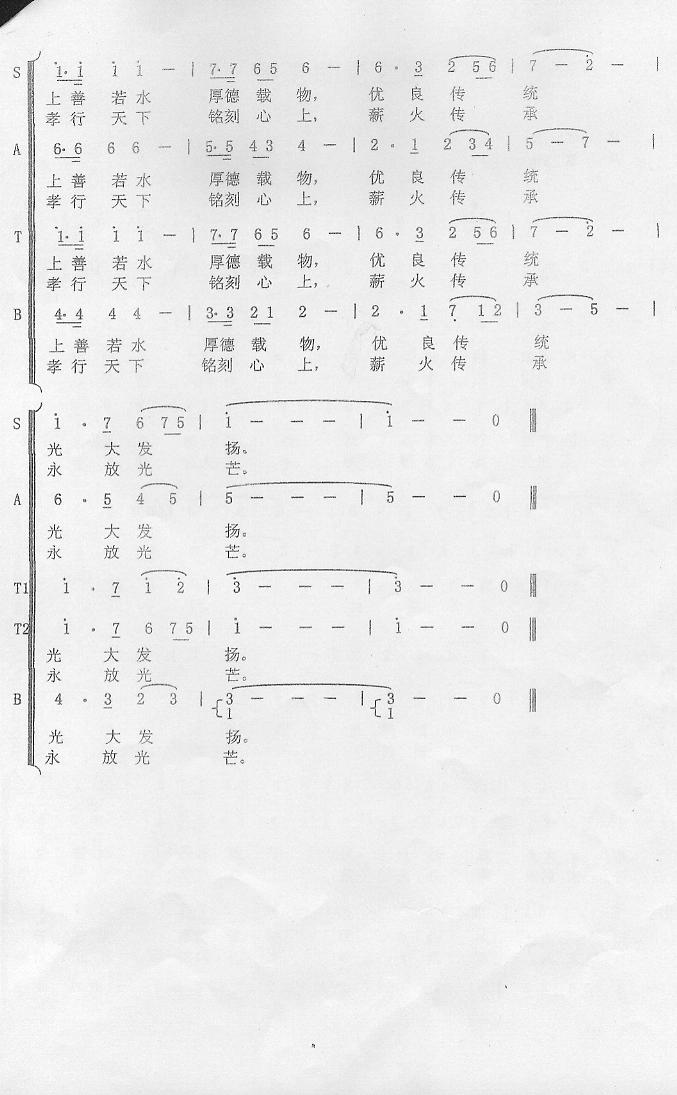 S 1̇· 1̇ 1̇ 1̇ — | 7· 7 6 5 6 — | 6 · 3 2 5 6 | 7 — 2̇ — |
上 善 若 水 厚德 载 物， 优 良 传 统
孝 行 天 下 铭刻 心 上， 薪 火 传 承
A 6· 6 6 6 — | 5· 5 4 3 4 — | 2 · 1 2 3 4 | 5 — 7 — |
上 善 若 水 厚德 载 物， 优 良 传 统
孝 行 天 下 铭刻 心 上， 薪 火 传 承
T 1̇· 1̇ 1̇ 1̇ — | 7· 7 6 5 6 — | 6 · 3 2 5 6 | 7 — 2̇ — |
上 善 若 水 厚德 载 物， 优 良 传 统
孝 行 天 下 铭刻 心 上， 薪 火 传 承
B 4· 4 4 4 — | 3· 3 2 1 2 — | 2 · 1 7̣ 1 2 | 3 — 5 — |
上 善 若 水 厚德 载 物， 优 良 传 统
孝 行 天 下 铭刻 心 上， 薪 火 传 承
S 1̇ · 7 6 7 5 | 1̇ — — — | 1̇ — — 0 ‖
光 大 发 扬。
永 放 光 芒。
A 6 · 5 4 5 | 5 — — — | 5 — — 0 ‖
光 大 发 扬。
永 放 光 芒。
T1 1̇ · 7 1̇ 2̇ | 3̇ — — — | 3̇ — — 0 ‖
T2 1̇ · 7 6 7 5 | 1̇ — — — | 1̇ — — 0 ‖
光 大 发 扬。
永 放 光 芒。
B 4 · 3 2 3 | 3 — — — | 3 — — 0 ‖
1 1
光 大 发 扬。
永 放 光 芒。